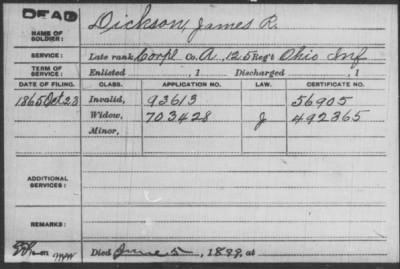 DEAD
NAME OF SOLDIER: Dickson, James R.
SERVICE: Late rank, Corpl Co. A, 125 Reg't Ohio Inf
TERM OF SERVICE: Enlisted , 1 Discharged , 1
DATE OF FILING. CLASS. APPLICATION NO. LAW. CERTIFICATE NO.
1865 Oct 23 Invalid, 93613 56905
Widow, 703428 J 492365
Minor,
ADDITIONAL SERVICES:
REMARKS:
Died June 5, 1899, at